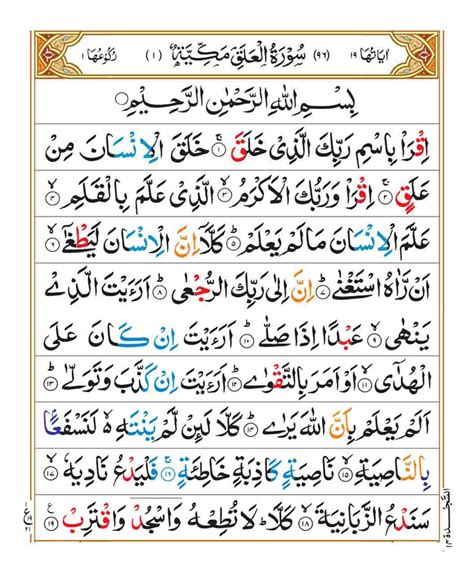 اٰيَاتُهَا ١٩ (٩٦) سُوْرَةُ الْعَلَقِ مَكِّيَّةٌ (١) رُكُوْعُهَا ١
بِسْمِ اللّٰهِ الرَّحْمٰنِ الرَّحِيْمِ
اِقْرَاْ بِاسْمِ رَبِّكَ الَّذِيْ خَلَقَ ۚ‏﴿١﴾ خَلَقَ الْاِنْسَانَ مِنْ
عَلَقٍ ۚ‏﴿٢﴾ اِقْرَاْ وَرَبُّكَ الْاَكْرَمُ ۙ‏﴿٣﴾ الَّذِيْ عَلَّمَ بِالْقَلَمِ ۙ‏﴿٤﴾
عَلَّمَ الْاِنْسَانَ مَا لَمْ يَعْلَمْ ؕ‏﴿٥﴾ كَلَّاۤ اِنَّ الْاِنْسَانَ لَيَطْغٰٓى ۙ‏﴿٦﴾
اَنْ رَّاٰهُ اسْتَغْنٰى ؕ‏﴿٧﴾ اِنَّ اِلٰى رَبِّكَ الرُّجْعٰى ؕ‏﴿٨﴾ اَرَءَيْتَ الَّذِيْ
يَنْهٰى ۙ‏﴿٩﴾ عَبْدًا اِذَا صَلّٰى ؕ‏﴿١٠﴾ اَرَءَيْتَ اِنْ كَانَ عَلَى
الْهُدٰٓى ۙ‏﴿١١﴾ اَوْ اَمَرَ بِالتَّقْوٰى ؕ‏﴿١٢﴾ اَرَءَيْتَ اِنْ كَذَّبَ وَتَوَلّٰى ؕ‏﴿١٣﴾
اَلَمْ يَعْلَمْ بِاَنَّ اللّٰهَ يَرٰى ؕ‏﴿١٤﴾ كَلَّا لَىِٕنْ لَّمْ يَنْتَهِ ۙ۬ لَنَسْفَعًۢا
بِالنَّاصِيَةِ ۙ‏﴿١٥﴾ نَاصِيَةٍ كَاذِبَةٍ خَاطِئَةٍ ۚ‏﴿١٦﴾ فَلْيَدْعُ نَادِيَهٗ ۙ‏﴿١٧﴾
سَنَدْعُ الزَّبَانِيَةَ ۙ‏﴿١٨﴾ كَلَّا ؕ لَا تُطِعْهُ وَاسْجُدْ وَاقْتَرِبْ ۩‏﴿١٩﴾
السَّجْدَة ١٤